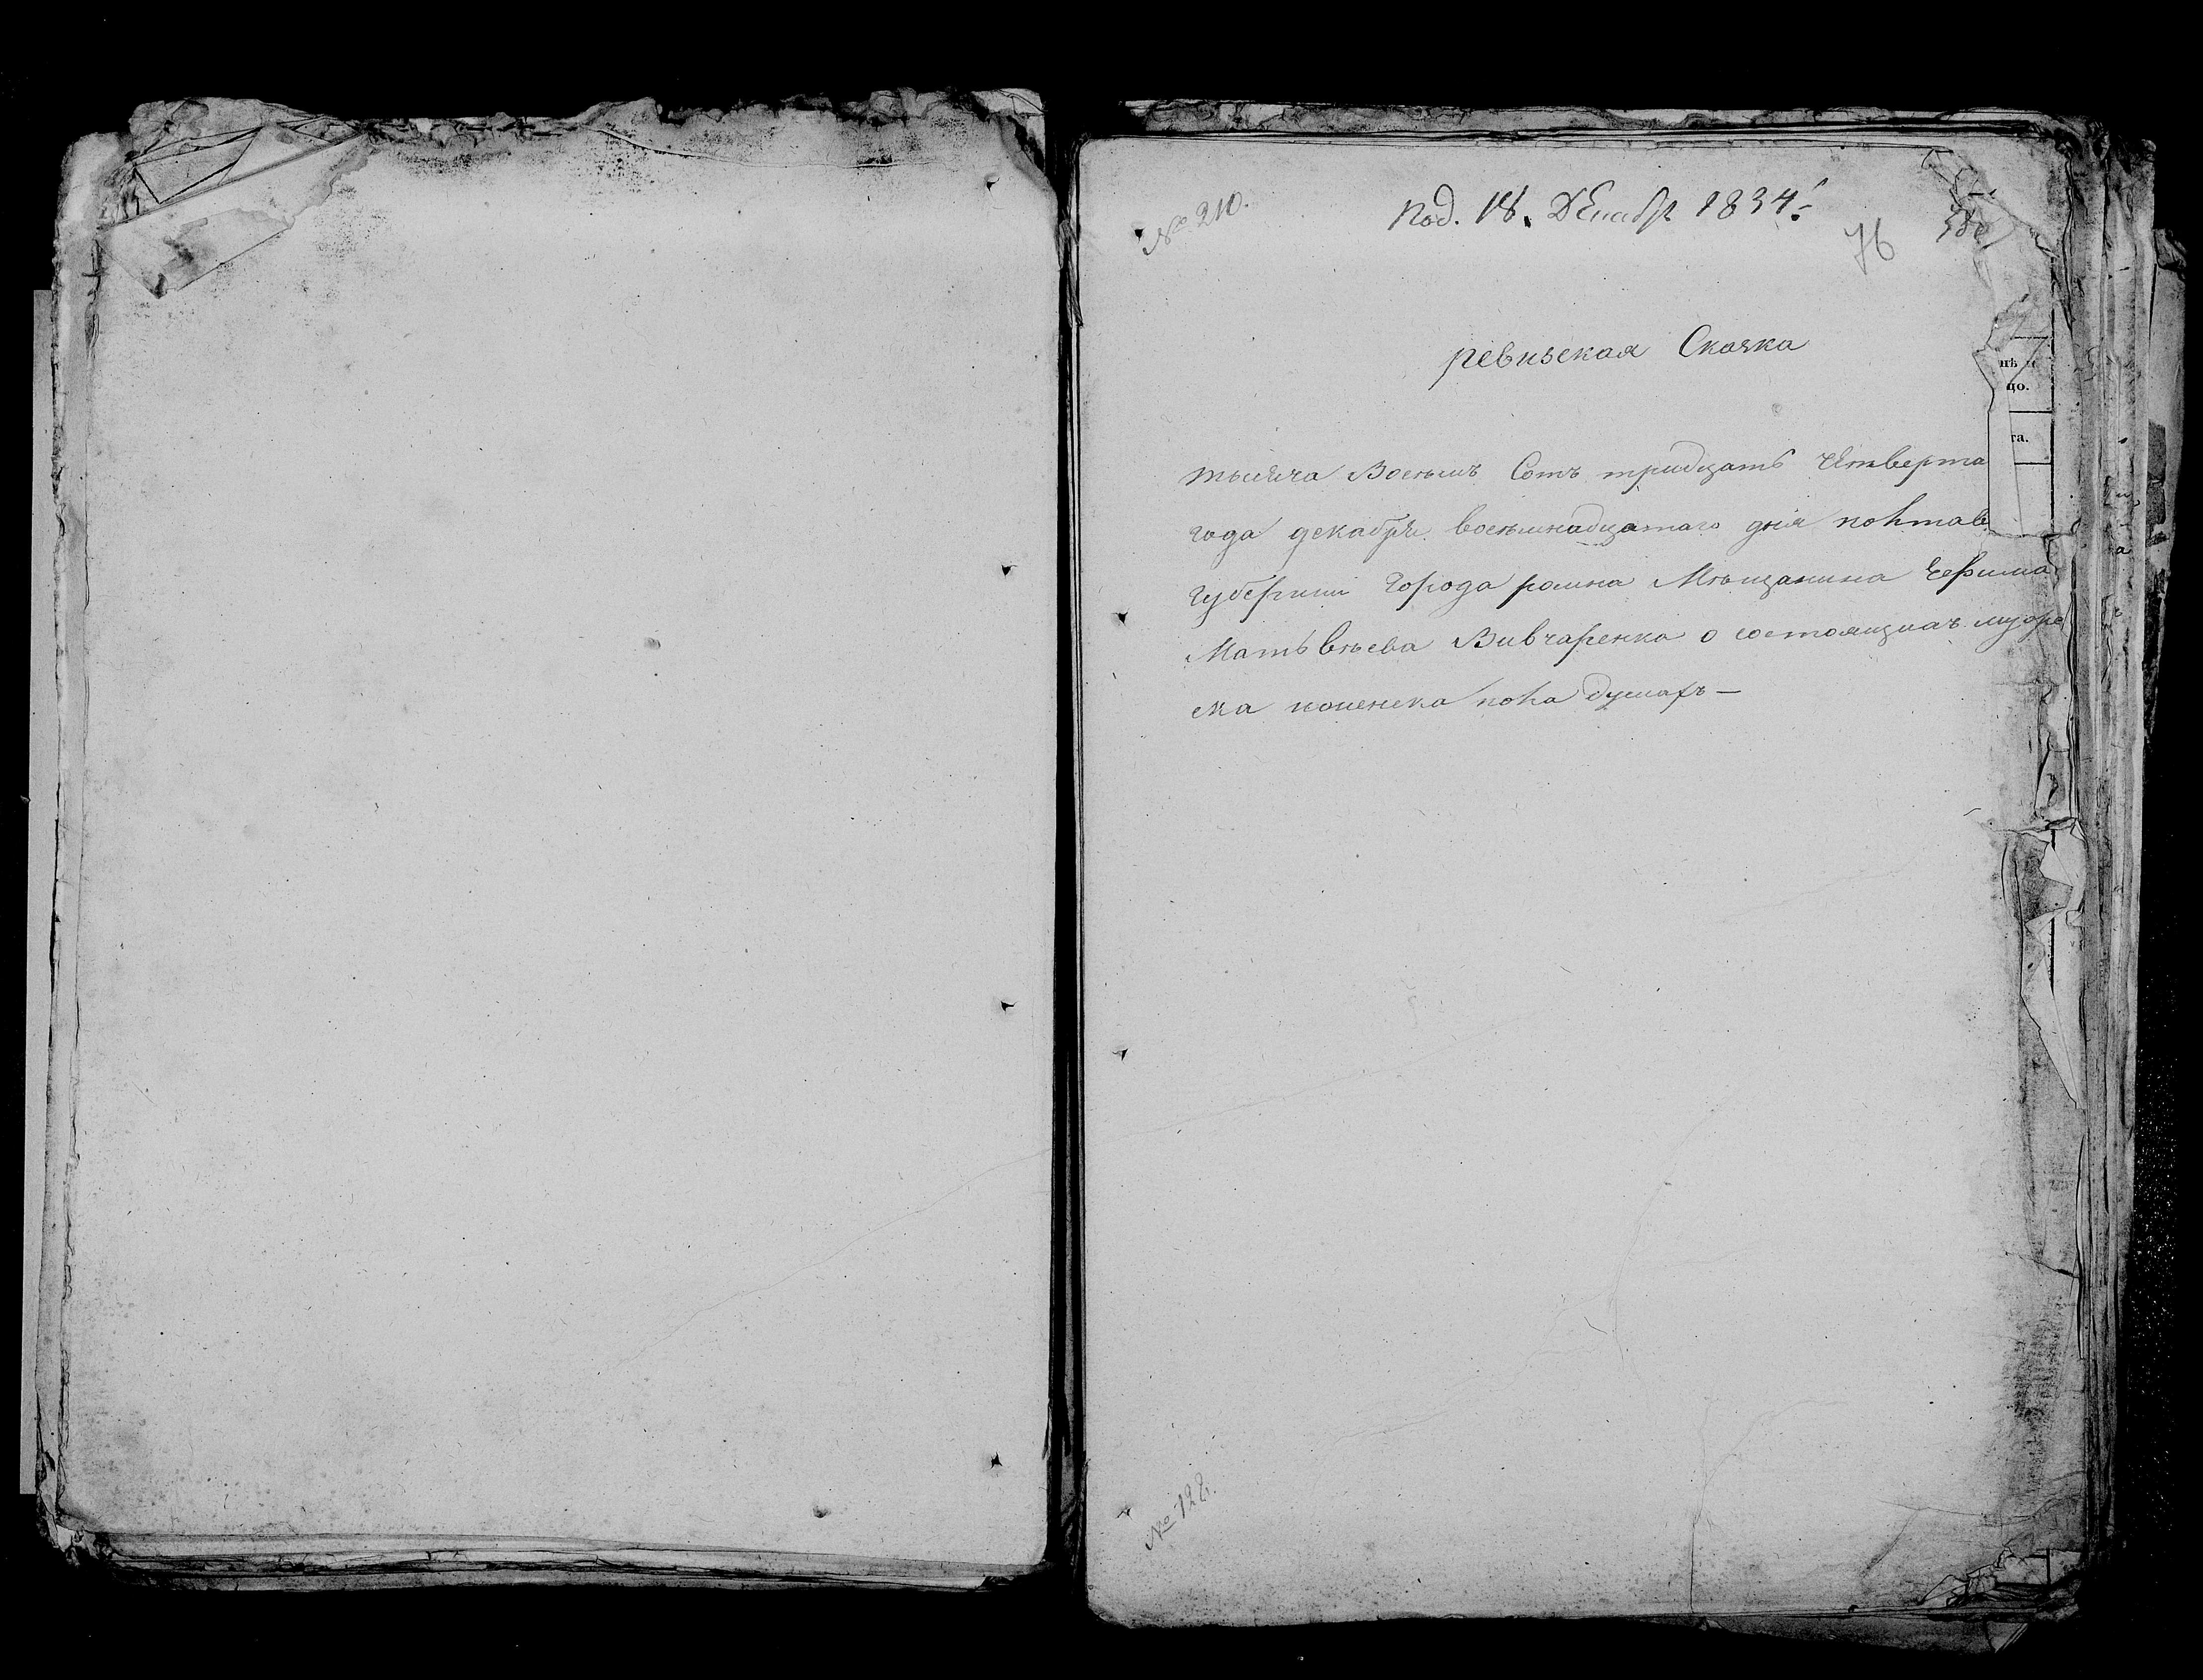 № 210.
Под. 18. Декабр 1834.
76
ревизская Скаска
нѣ и
цо.
та.
тысяча Восемъ Сотъ тридцать Четверта
года декабря восемнадцатаго дня полтав
Губернии Города ромна Мѣщанина Ефима
Матьвѣева Вивчаренка о состоящиахъ мужес
ка и женска пола душахъ —
№ 128.